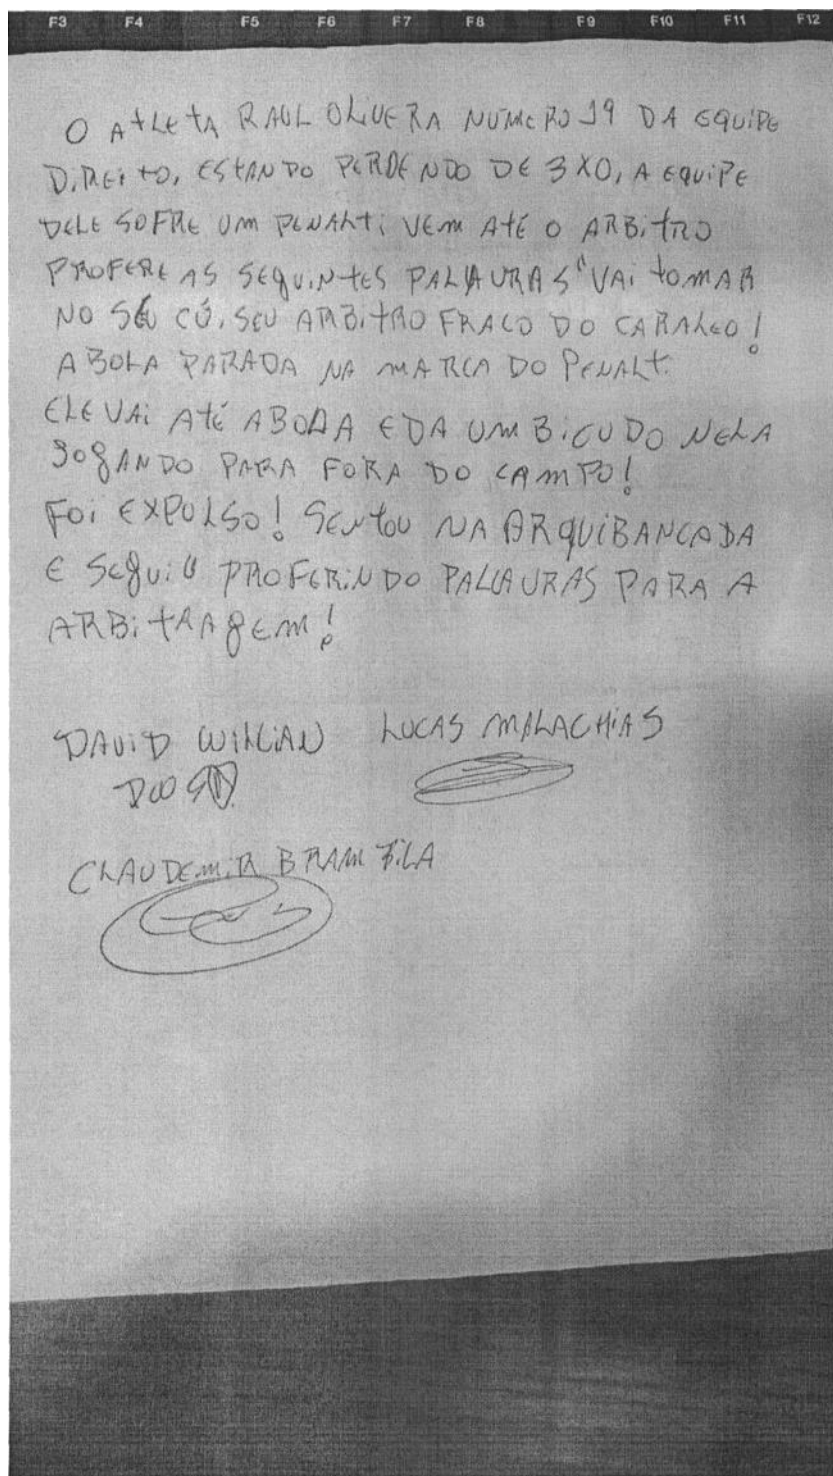 F3 F4 F5 F6 F7 F8 F9 F10 F11 F12
O ATLETA RAUL OLIVERA NÚMERO 19 DA EQUIPE
DIREITO, ESTANDO PERDENDO DE 3X0, A EQUIPE
DELE SOFRE UM PENALTI VEM ATÉ O ARBITRO
PROFERE AS SEQUINTES PALAURAS "VAI TOMAR
NO SEU CÚ, SEU ARBITRO FRACO DO CARALEO!
A BOLA PARADA NA MARCA DO PENALT.
ELE VAI ATÉ A BOLA E DA UM BICUDO NELA
JOGANDO PARA FORA DO CAMPO!
FOI EXPULSO! SENTOU NA ARQUIBANCADA
E SEGUIU PROFERINDO PALAURAS PARA A
ARBITRAGEM!
DAVID WILLIAN LUCAS MALACHIAS
CLAUDEMIR BRAMBILA